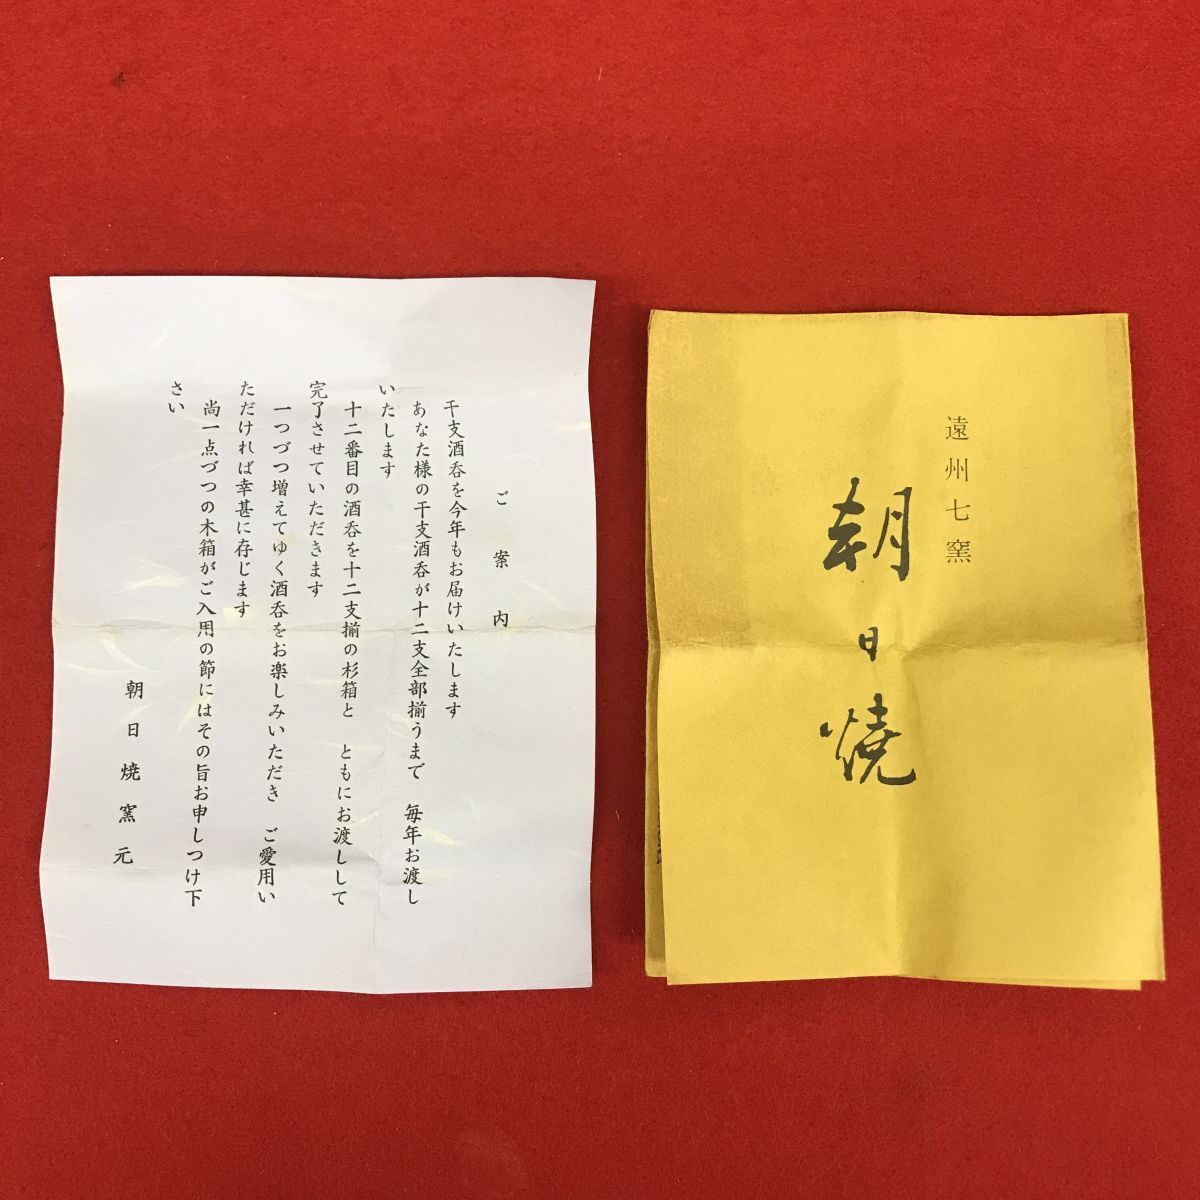 ご案内
干支酒呑を今年もお届けいたします
あなた様の干支酒呑が十二支全部揃うまで　毎年お渡し
いたします
十二番目の酒呑を十二支揃の杉箱と　ともにお渡しして
完了させていただきます
一つづつ増えてゆく酒呑をお楽しみいただき　ご愛用い
ただければ幸甚に存じます
尚一点づつの木箱がご入用の節にはその旨お申しつけ下
さい
朝日焼窯元
遠州七窯
朝日燒